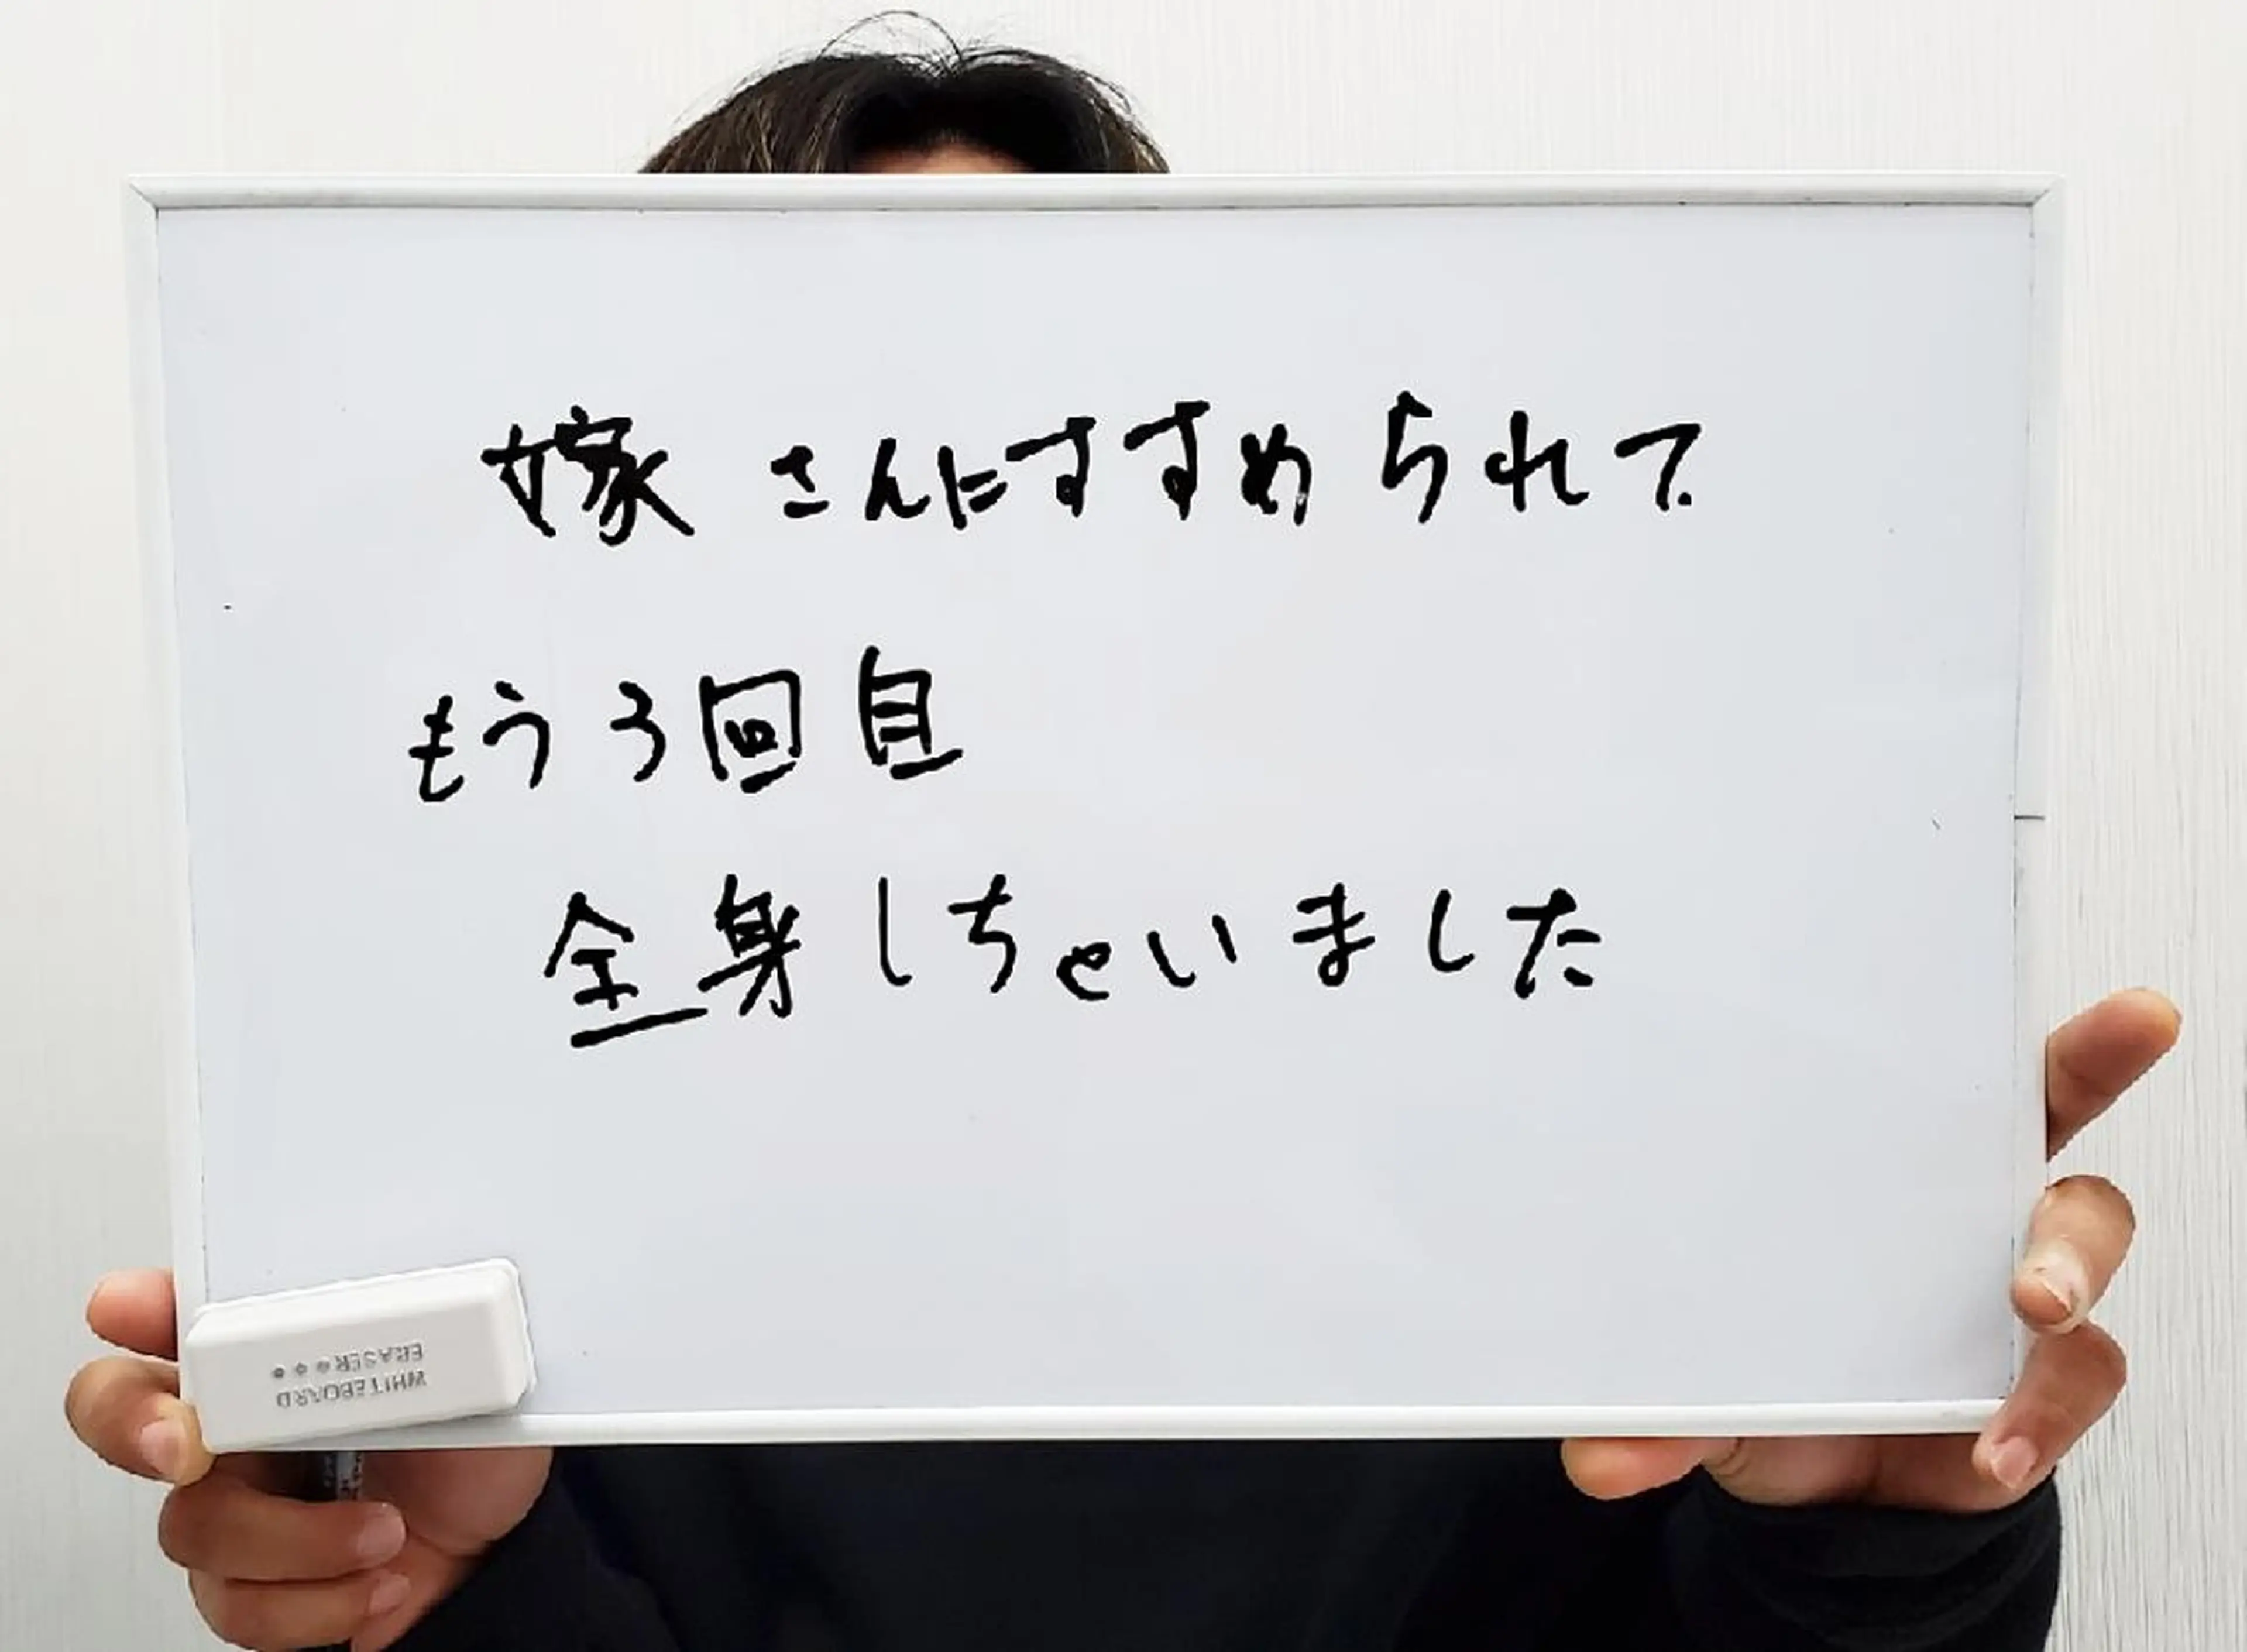 嫁さんにすすめられて
もう3回目
全身しちゃいました
WHITEBOARD
ERASER